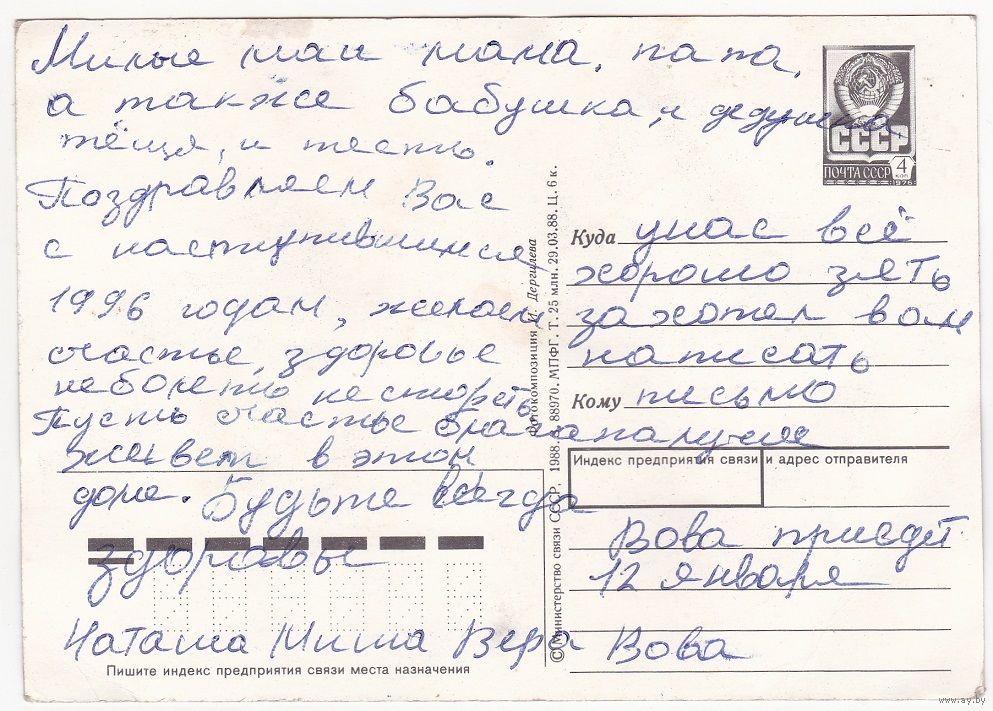 Милые маи мама, папа,
а также бабушка, и дедушка,
тёщя, и тесть.
Поздравляем Вас
с наступившимся
1996 годам, желаем,
счастье, здоровье
неболеть нестореть
Пусть счастье благапалучие
живет в этом
доме. Будьте всегда
здоровы
Наташа Миша Вера Вова
Пишите индекс предприятия связи места назначения
© Министерство связи СССР. 1988. З. 88970. МПФГ. Т. 25 млн. 29.03.88. Ц. 6 к.
Фотокомпозиция И. Дергилева
СССР
ПОЧТА СССР 4 КОП
1976
Куда унас всё
хорошо зять
захотел вам
написать
Кому письмо
Индекс предприятия связи и адрес отправителя
Вова приедет
12 января
www.ay.by